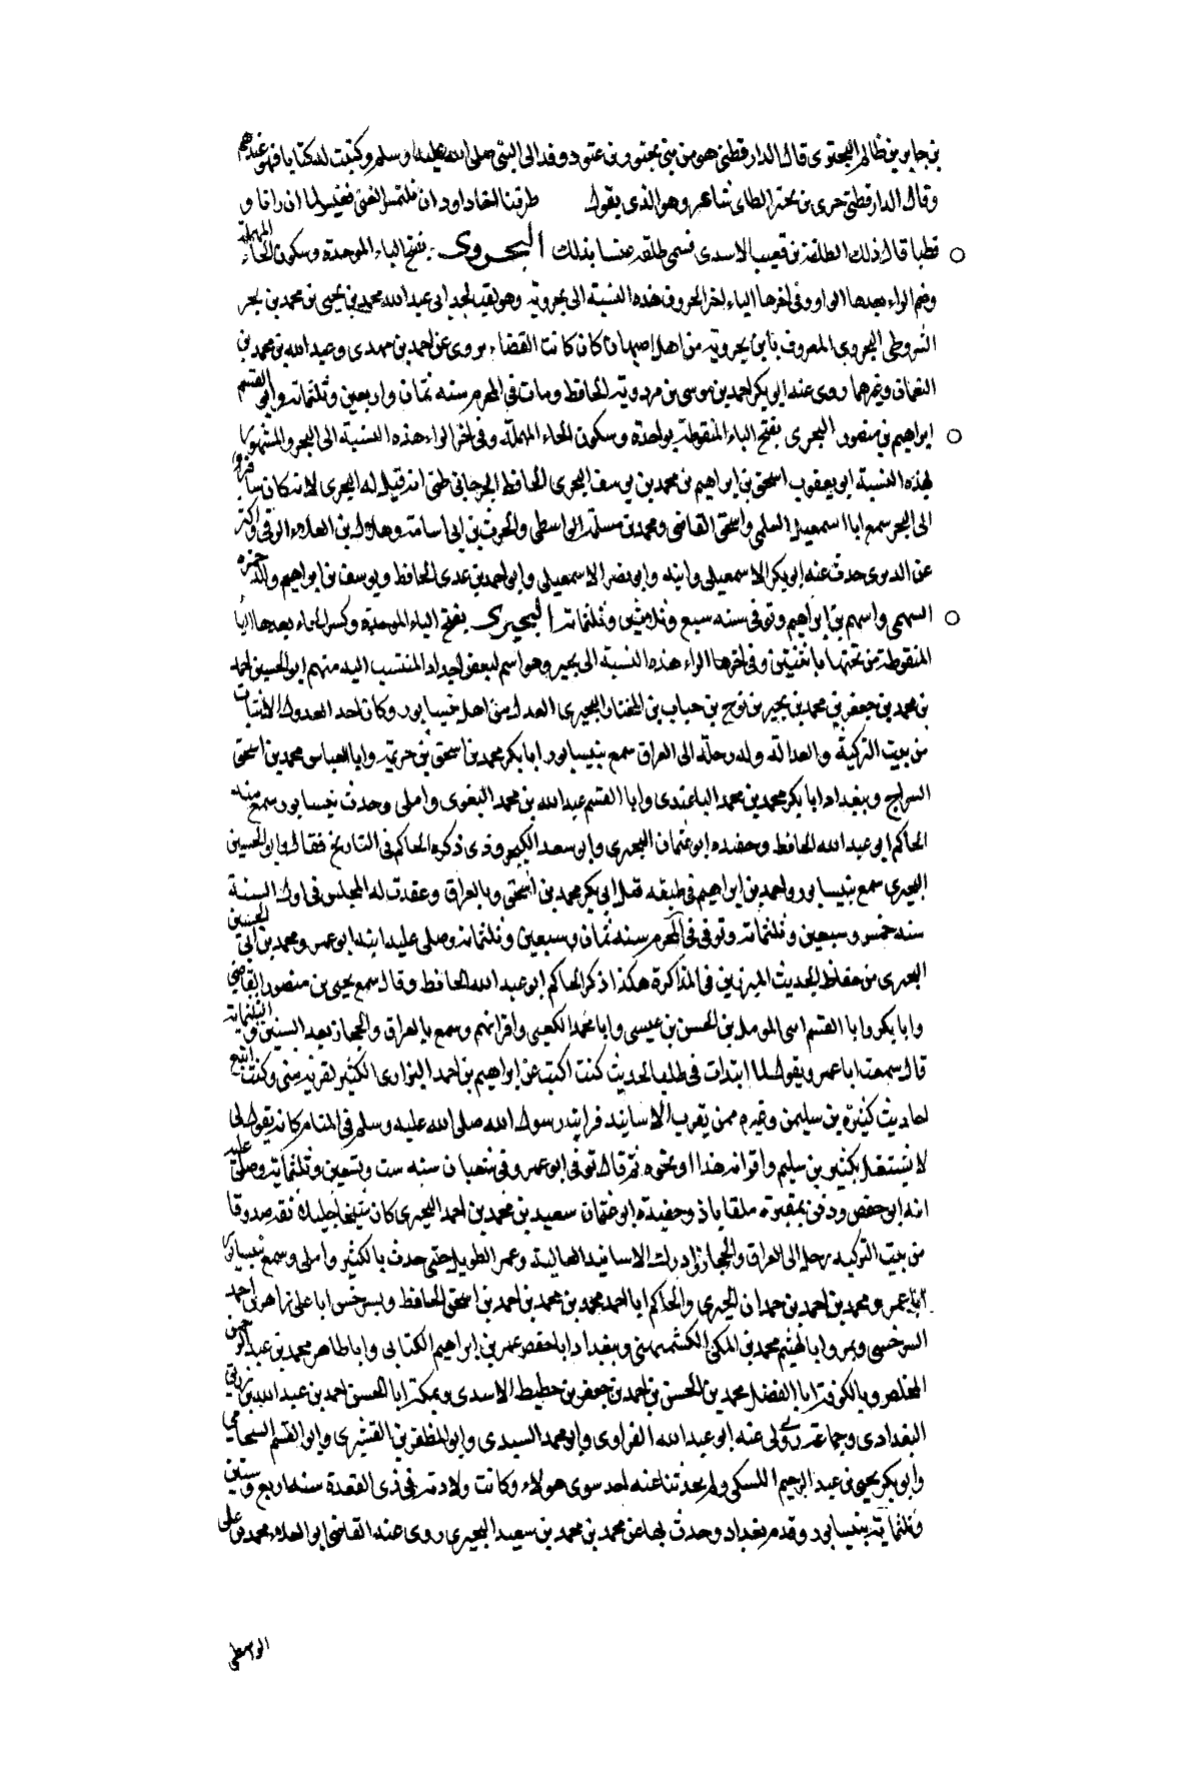 بن جابر بن ظالم البحتري قال الدارقطني هو من بني بحتر بن عتود وفد الى النبي صلى الله عليه وسلم وكتب له كتابا فهو عندهم
وقال الدارقطني حرى بن بحتر الطاي شاعر وهو الذي يقول طرقنا
قال ذلك بن قعيب الاسدى فسمى بذلك البحروى بفتح الباء الموحدة وسكون الحاء المهملة
وضم الراء بعدها الواو وفي اخرها الياء اخر الحروف هذه النسبة الى بحرويه وهو لقب لجد ابي عبد الله محمد بن يحيى بن محمد بن بحر
الشروطي البحروى المعروف بابن بحرويه من اهل اصبهان كان كاتب القضاء يروى عن احمد بن مهدى وعبد الله بن محمد بن
النعمان وغيرهما روى عنه ابو بكر احمد بن موسى بن مردويه الحافظ ومات في المحرم سنه ثمان واربعين وثلثمائه وابي القسم
ابراهيم بن منصور البحرى بفتح الباء المنقوطة بواحدة وسكون الحاء المهملة وفي اخرها الراء هذه النسبة الى البحر والمشهور
بهذه النسبة ابو يعقوب اسحق بن ابراهيم بن محمد بن يوسف البحرى الحافظ الجرجاني ظني انه قيل له البحرى لانه كان سافر
الى البحر سمع ابا اسمعيل السلمي واسحق القاضي ومحمد بن مسلمة الواسطي والحرث بن ابي اسامة وهلال بن العلاء الرقي واكثر
عن الدبرى حدث عنه ابو بكر الاسمعيلي وابنه وابو نصر الاسمعيلي وابو احمد بن عدى الحافظ ويوسف بن ابراهيم والد حمزه
السهمي واسهم بن ابراهيم وتوفى سنه سبع وثلاثين وثلثمائة البحيرى بفتح الباء الموحدة وكسر الحاء بعدها اليا
المنقوطة من تحتها باثنتين وفي اخرها الراء هذه النسبة الى بحير وهو اسم لبعض اجداد المنتسب اليه منهم ابو الحسين احمد
بن محمد بن جعفر بن محمد بن بحير بن نوح بن حباب بن المختار البحيرى العدل من اهل نيسابور وكان احد العدول الاثبات
من بيت التزكية والعدالة وله رحلة الى العراق سمع بنيسابور ابا بكر محمد بن اسحق بن خزيمة وابا العباس محمد بن اسحق
السراج وببغداد ابا بكر محمد بن محمد الباغندى وابا القسم عبد الله بن محمد البغوى واملى وحدث بنيسابور سمع منه
الحاكم ابو عبد الله الحافظ وحفيده ابو عثمان البحيرى وابو سعد وذكره الحاكم في التاريخ فقال وابو الحسين
البحيرى سمع بنيسابور واحمد بن ابراهيم في طبقه قبل ابي بكر محمد بن اسحق وبالعراق وعقدت له المجلس في اول السنة
سنه خمس وسبعين وثلثمائة وتوفى في المحرم سنه ثمان وسبعين وثلثمائة وصلى عليه ابنه ابو عمرو محمد بن ابي الحسين
البحيرى من حفاظ الحديث المبرزين في المذاكرة هكذا ذكر الحاكم ابو عبد الله الحافظ وقال سمع يحيى بن منصور القاضي
وابا بكر وابا القسم المومل بن الحسن بن عيسى وابا محمد الكعبي واقرانهم وسمع بالعراق والحجاز بعد الستين والثلثمائة
قال سمعت ابا عمرو يقول لما ابتدات في طلب الحديث كنت اكتب عن ابراهيم بن احمد الكثير لقربه مني وكنت اتبع
احاديث كثير بن سليمن وغيره ممن يقرب الاسانيد فرايت رسول الله صلى الله عليه وسلم في المنام كانه يقول لي
لا تشتغل بكثير بن سليم واقرانه هذا او نحوه ثم قال توفى ابو عمرو في شعبان سنه ست وتسعين وثلثمائة وصلى عليه
ابنه ابو حفص ودفن بمقبرة ملقاباذ وحفيده ابو عثمان سعيد بن محمد بن احمد البحيرى كان شيخا جليلا ثقه صدوقا
من بيت التزكيه رحل الى العراق والحجاز وادرك الاسانيد العالية وعمر الطويل حتى حدث بالكثير واملى وسمع بنيسابور
ابا عمرو محمد بن احمد بن حمدان الحيرى والحاكم ابا احمد محمد بن محمد بن احمد بن اسحق الحافظ وبسرخس ابا على زاهر بن احمد
السرخسي وبمرو ابا الهيثم محمد بن المكي الكشميهني وببغداد ابا حفص عمر بن ابراهيم الكتاني وابا طاهر محمد بن عبد الرحمن
المخلص وبالكوفة ابا الفضل محمد بن الحسن بن احمد بن جعفر بن حطيط الاسدى وبمكة ابا الحسن احمد بن عبد الله بن رزيق
البغدادى وجماعة روى لي عنه ابو عبد الله الفراوى وابو محمد السيدى وابو المظفر بن القشيرى وابو القسم الشحامي
وابو بكر يحيى بن عبد الرحيم ولم يحدثنا عنه احد سوى هولاء وكانت ولادته في ذى القعدة سنه اربع وستين
وثلثمائة بنيسابور وقدم بغداد وحدث بها عن محمد بن محمد بن سعيد البحيرى روى عنه القاضي ابو العلاء محمد بن على
الواسطي